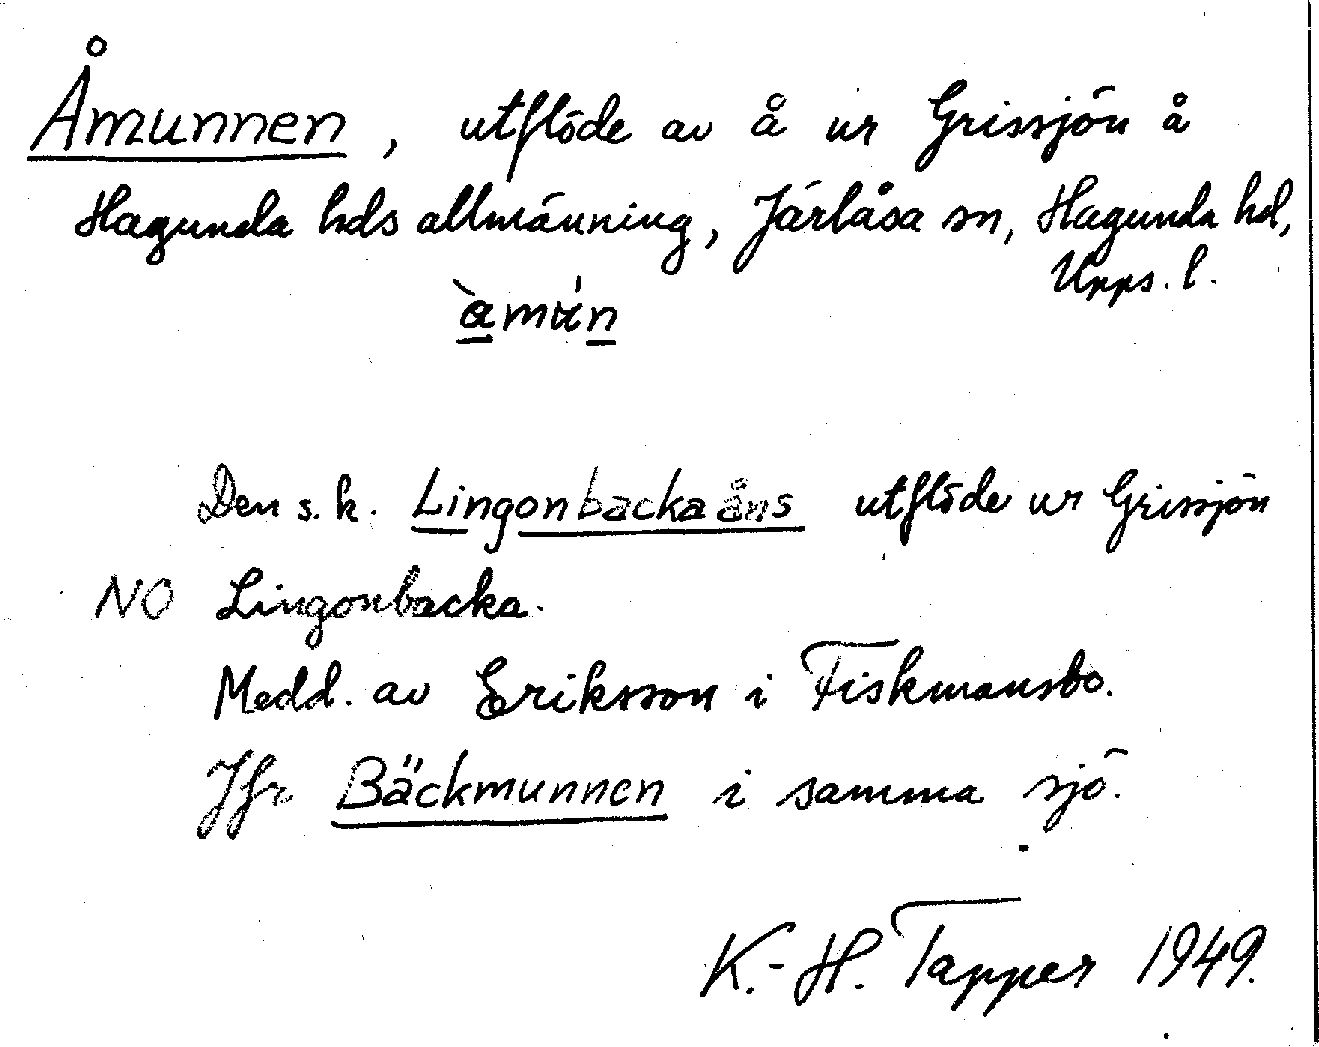 Åmunnen, utflöde av å ur Grissjön å
Hagunda hds allmänning, Järlåsa sn, Hagunda hd,
Upps. l.
Den s.k. Lingonbackaåns utflöde ur Grissjön
NO Lingonbacka.
Medd. av Eriksson i Fiskmansbo.
Jfr Bäckmunnen i samma sjö.
K.-H. Tapper 1949.